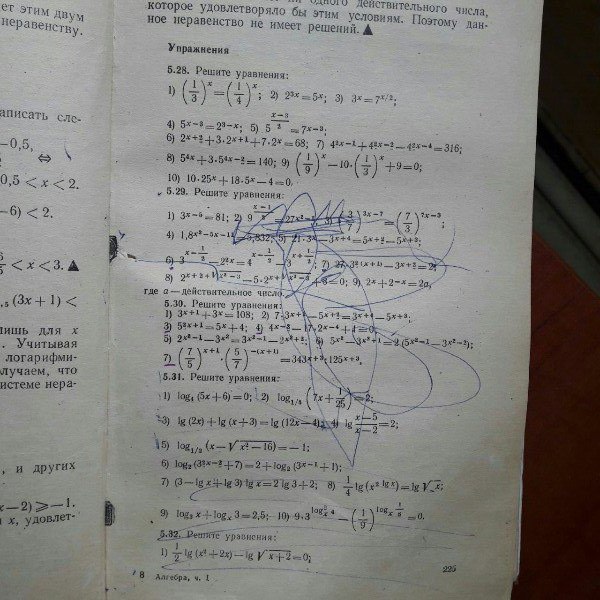 ет этим двум
неравенству.
аписать сле-
-0,5,
⇔
0,5 < x < 2.
-6) < 2.
< x < 3. ▲
,5 (3x + 1) <
лишь для x
. Учитывая
логарифми-
олучаем, что
системе нера-
, и других
x — 2) ⩾ —1.
и x, удовлет-
одного действительного числа,
которое удовлетворяло бы этим условиям. Поэтому дан-
ное неравенство не имеет решений. ▲
Упражнения
5.28. Решите уравнения:
1) (1/3)^x = (1/4)^x; 2) 2^{3x} = 5^x; 3) 3^x = 7^{x/2};
4) 5^{x-3} = 2^{3-x}; 5) 5^{(x-3)/2} = 7^{x-3};
6) 2^{x+2} + 3·2^{x+1} + 7·2^x = 68; 7) 4^{2x-1} + 4^{2x-2} — 4^{2x-4} = 316;
8) 5^{4x} + 3·5^{4x-2} = 140; 9) (1/9)^x — 10·(1/3)^x + 9 = 0;
10) 10·25^x + 18·5^x — 4 = 0.
5.29. Решите уравнения:
1) 3^{x-5} = 81; 2) = 27 3) (3/7)^{3x-7} = (7/3)^{7x-3};
4) 1,8 = 5,832; 5) — 5^{x+3};
6) 3 7) 27·3 = 2x
8) 2 — 5·2 = 0; 9) 2x + 2 — x = 2a,
где a — действительное число.
5.30. Решите уравнения:
1) 3^{x+1} + 3^x = 108; 2) 7·3^{x+1} — 5^{x+2} = 3^{x+4} — 5^{x+3};
3) 5^{2x} = 5^x + 4; 4) 4^{x-2} — 17·2^{x-4} + 1 = 0;
5) 2^{x²-1} — 3^{x²} = 3^{x²-1} — 2^{x²+2}; 6) 5^{x²} — 3^{x²+1} = 2 (5^{x²-1} — 3^{x²-2});
7) (7/5)^{x+1} · (5/7)^{-(x+1)} = 343^{x+3} · 125^{x+3}.
5.31. Решите уравнения:
1) (5x + 6) = 0; 2) log_{1/5} (7x + 1/25) = 2;
3) lg (2x) + lg (x + 3) = lg (12x — 4); 4) lg (x — 5)/(x — 2) = 2;
5) log_{1/2} (x — √(x² — 16)) = —1;
6) log₂ (3^{2x-2} + 7) = 2 + log₂ (3^{x-1} + 1);
7) (3 — lg x + lg 3) lg x = 2 lg 3 + 2; 8) 1/4 lg (x^{2 lg x}) = lg √x;
9) log₃ x + log_x 3 = 2,5; 10) = 0.
5.32. Решите уравнения:
1) 1/2 lg (x² + 2x) — lg √(x + 2) = 0;
8 Алгебра, ч. 1
225